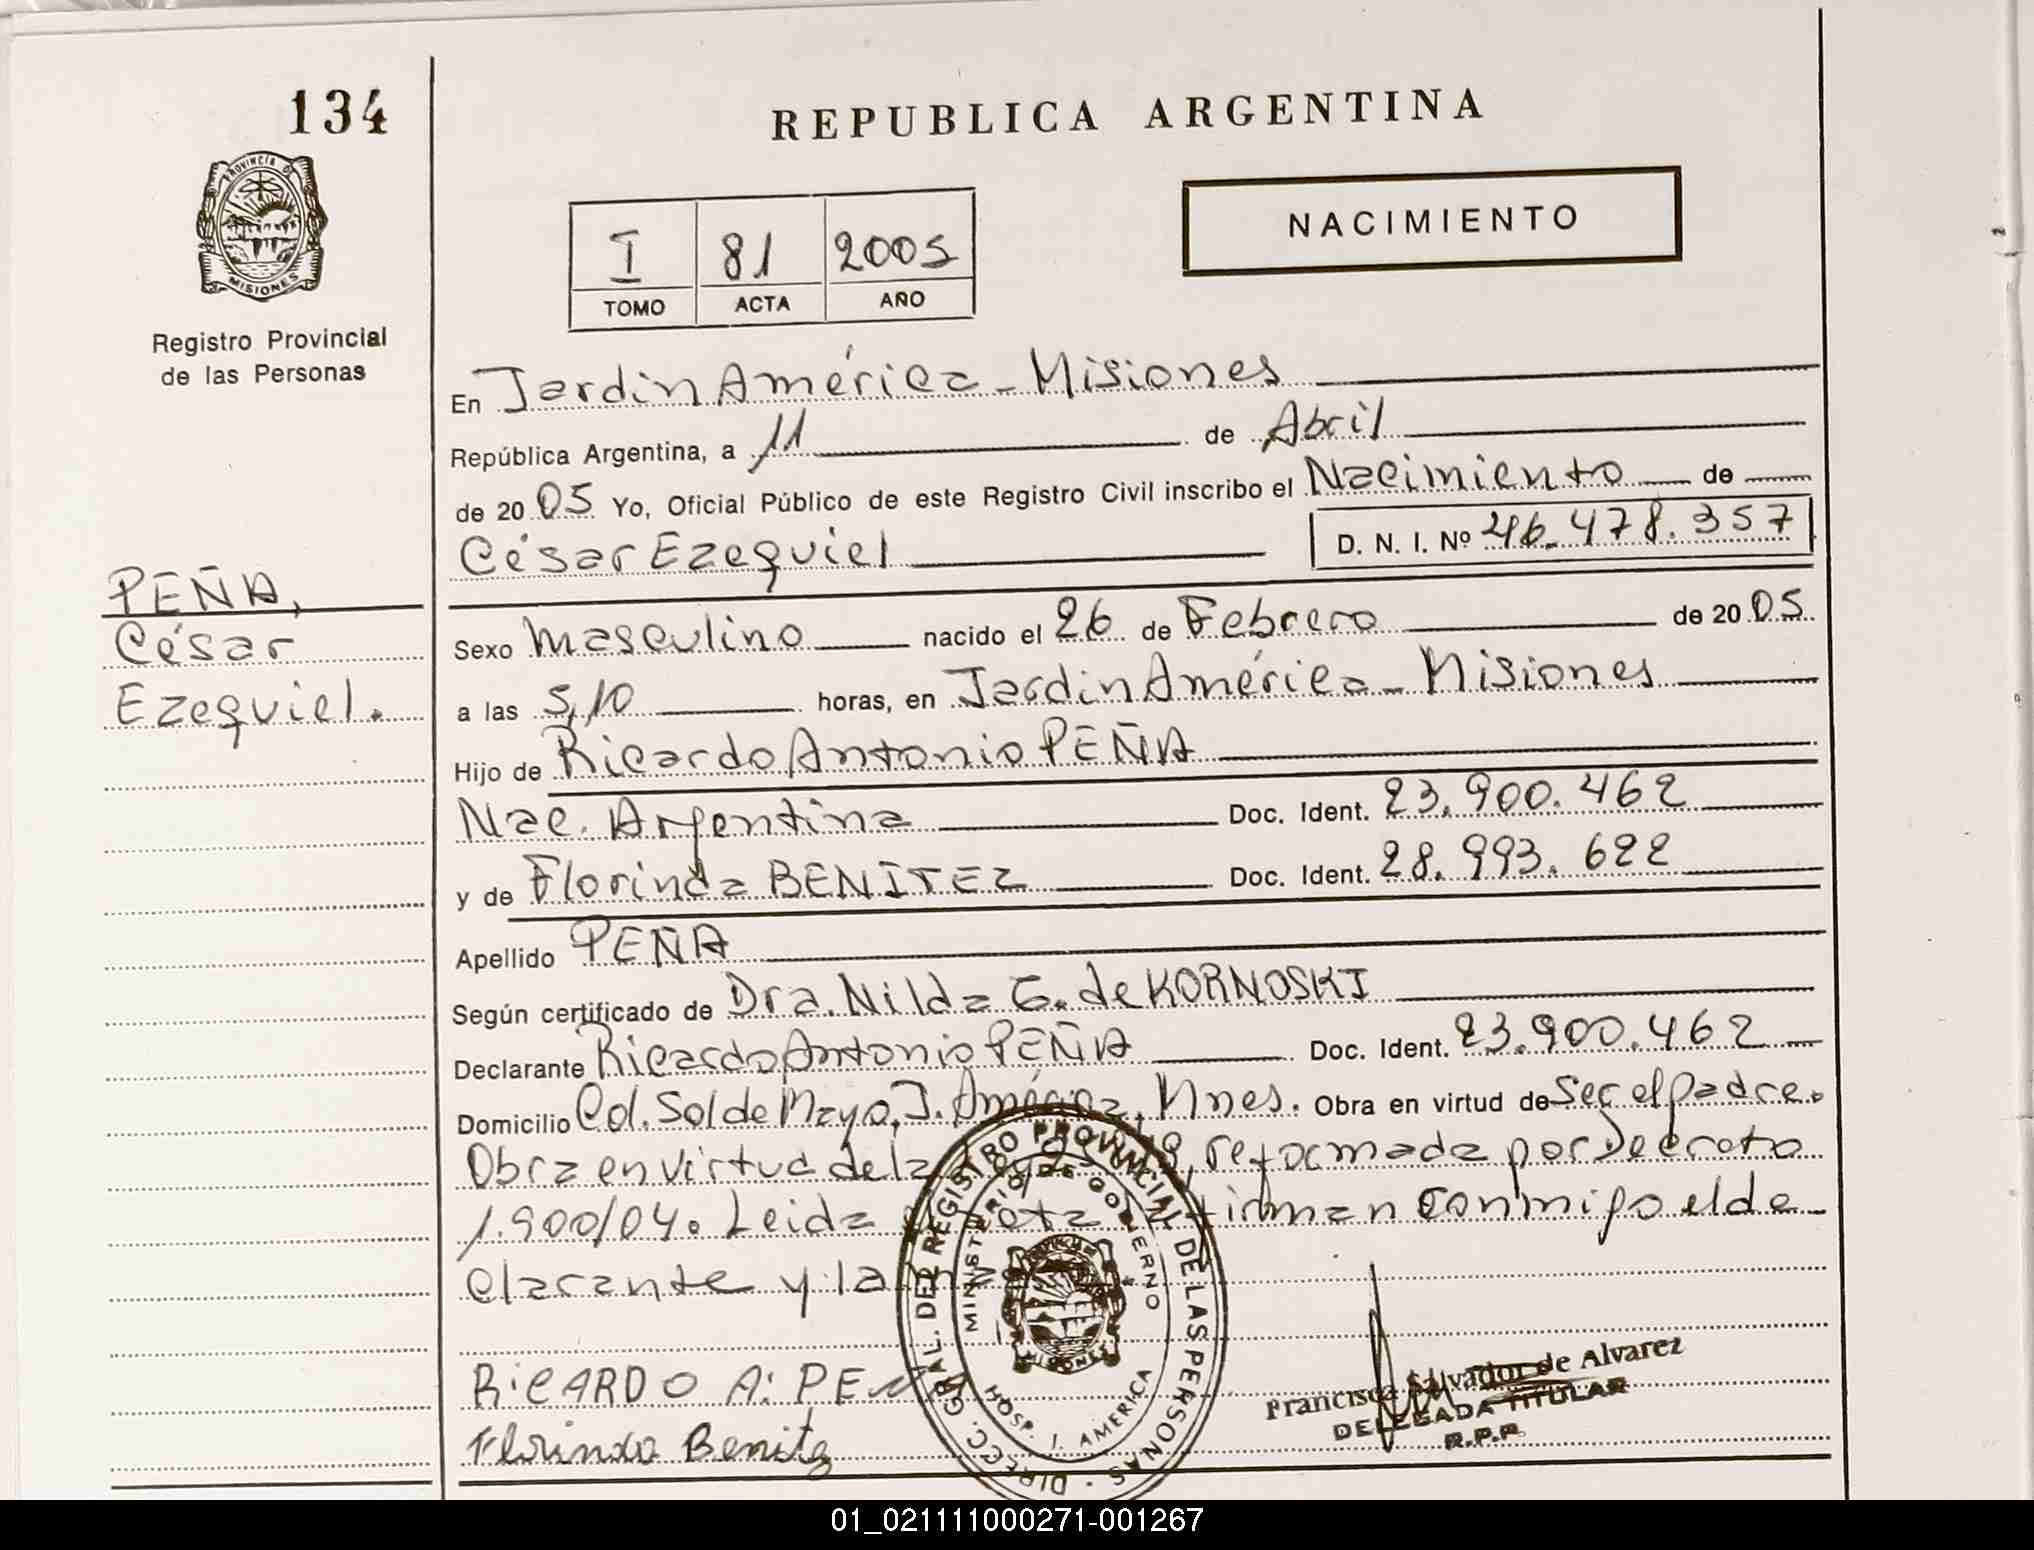 134
REPUBLICA ARGENTINA
PROVINCIA DE
MISIONES
NACIMIENTO
I 81 2005
TOMO ACTA AÑO
Registro Provincial
de las Personas
En Jardín América - Misiones
República Argentina, a 11 de Abril
de 2005 Yo, Oficial Público de este Registro Civil inscribo el Nacimiento de
César Ezequiel D. N. I. Nº 46.478.357
PEÑA,
César
Ezequiel.
Sexo Masculino nacido el 26 de Febrero de 2005
a las 5,10 horas, en Jardín América - Misiones
Hijo de Ricardo Antonio PEÑA
Nac. Argentina Doc. Ident. 23.900.462
y de Florinda BENITEZ Doc. Ident. 28.993.622
Apellido PEÑA
Según certificado de Dra. Nilda G. de KORNOSKI
Declarante Ricardo Antonio PEÑA Doc. Ident. 23.900.462
Domicilio Col. Sol de Mayo, J. América, Mnes. Obra en virtud de Ser el padre.
Obra en virtud de la reformada por Decreto
1.900/04. Leida acta firman conmigo el de
clarante y la
RICARDO A. PEÑA
Florinda Benitez
DIRECC. GRAL. DEL REGISTRO PROVINCIAL DE LAS PERSONAS
MINISTERIO DE GOBIERNO
MISIONES
HOSP. J. AMERICA
Francisca Salvador de Alvarez
DELEGADA TITULAR
R.P.P.
01_021111000271-001267